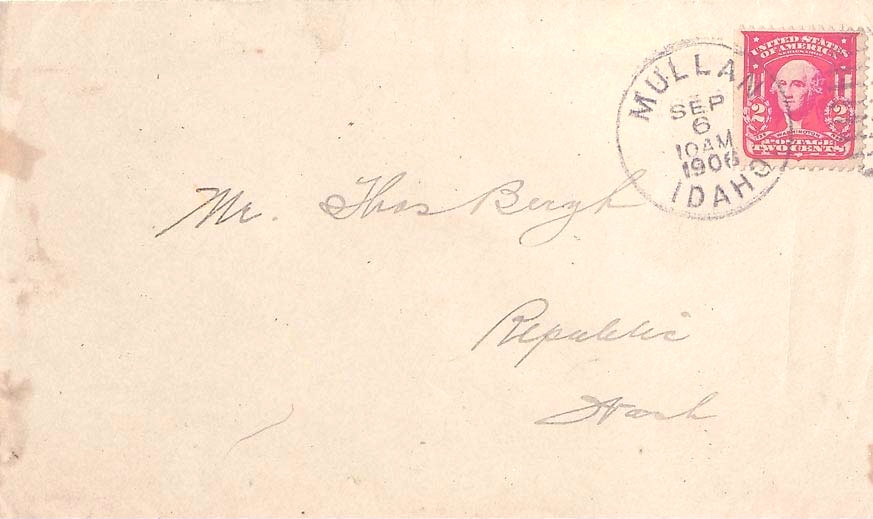 MULLAN
SEP
6
10AM
1906
IDAHO
UNITED STATES
OF AMERICA
2 2
WASHINGTON
POSTAGE
TWO CENTS
Mr. Thos Bergh
Republic
Wash